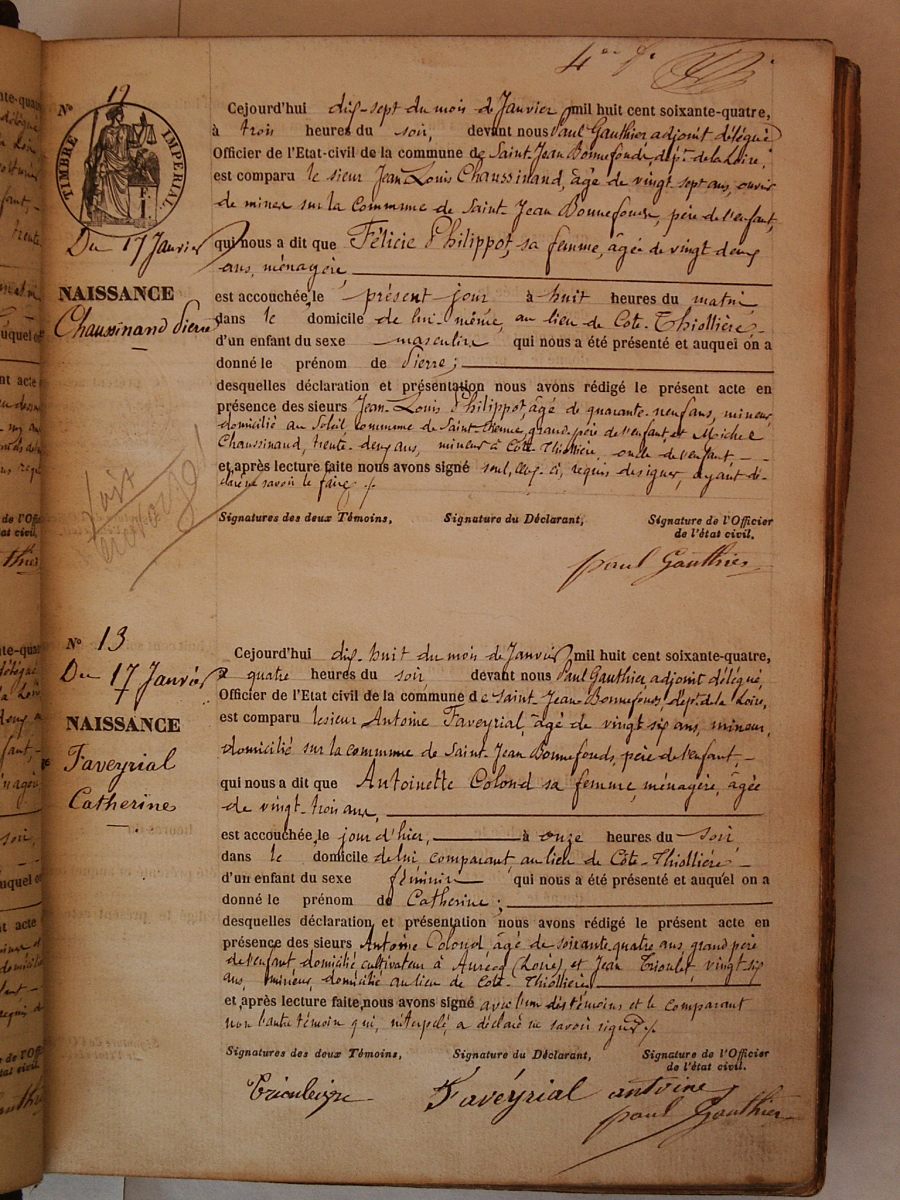 Nº 12
TIMBRE IMPÉRIAL
Cejourd'hui dix-sept du mois de Janvier mil huit cent soixante-quatre,
à trois heures du soir, devant nous Paul Gauthier adjoint délégué
Officier de l'Etat-civil de la commune de Saint Jean Bonnefonds dépt. de la Loire,
est comparu le sieur Jean Louis Chaussinand, âgé de vingt sept ans, ouvrier
de mines sur la Commune de Saint Jean Bonnefonds, père de l'enfant,
Du 17 Janvier
qui nous a dit que Félicie Philippot, sa femme, âgée de vingt deux
ans, ménagère,
NAISSANCE
Chaussinand Pierre
est accouchée, le présent jour à huit heures du matin
dans le domicile de lui-même, au lieu de Côte-Thiollière
d'un enfant du sexe masculin qui nous a été présenté et auquel on a
donné le prénom de Pierre ;
desquelles déclaration et présentation nous avons rédigé le présent acte en
présence des sieurs Jean-Louis Philippot âgé de quarante-neuf ans, mineur
domicilié au Soleil, commune de Saint-Etienne, grand-père de l'enfant, et Michel
Chaussinand, trente-deux ans, mineur à Côte Thiollière, oncle de l'enfant
et, après lecture faite nous avons signé seul, ceux-ci, requis de signer, ayant dé-
claré ne savoir le faire
Signatures des deux Témoins, Signature du Déclarant, Signature de l'Officier
de l'état civil.
Paul Gauthier
Nº 13
Du 17 Janvier
NAISSANCE
Faveyrial
Catherine
Cejourd'hui dix-huit du mois de Janvier mil huit cent soixante-quatre,
à quatre heures du soir, devant nous Paul Gauthier adjoint délégué
Officier de l'Etat civil de la commune de Saint-Jean-Bonnefonds, dépt. de la Loire,
est comparu le sieur Antoine Faveyrial, âgé de vingt six ans, mineur,
domicilié sur la commune de Saint-Jean Bonnefonds, père de l'enfant,
qui nous a dit que Antoinette Colond sa femme, ménagère, âgée
de vingt-trois ans,
est accouchée, le jour d'hier, à onze heures du soir
dans le domicile de lui, comparant, au lieu de Côte-Thiollière
d'un enfant du sexe féminin qui nous a été présenté et auquel on a
donné le prénom de Catherine ;
desquelles déclaration et présentation nous avons rédigé le présent acte en
présence des sieurs Antoine Colond âgé de soixante quatre ans, grand père
de l'enfant, domicilié cultivateur à Aurecq (Loire), et Jean Trioulet, vingt six
ans, mineur, domicilié au lieu de Côte-Thiollière
et, après lecture faite, nous avons signé avec l'un des témoins et le comparant
non l'autre témoin qui, interpelé, a déclaré ne savoir signer
Signatures des deux Témoins, Signature du Déclarant, Signature de l'Officier
de l'état civil.
Faveyrial antoine
Paul Gauthier